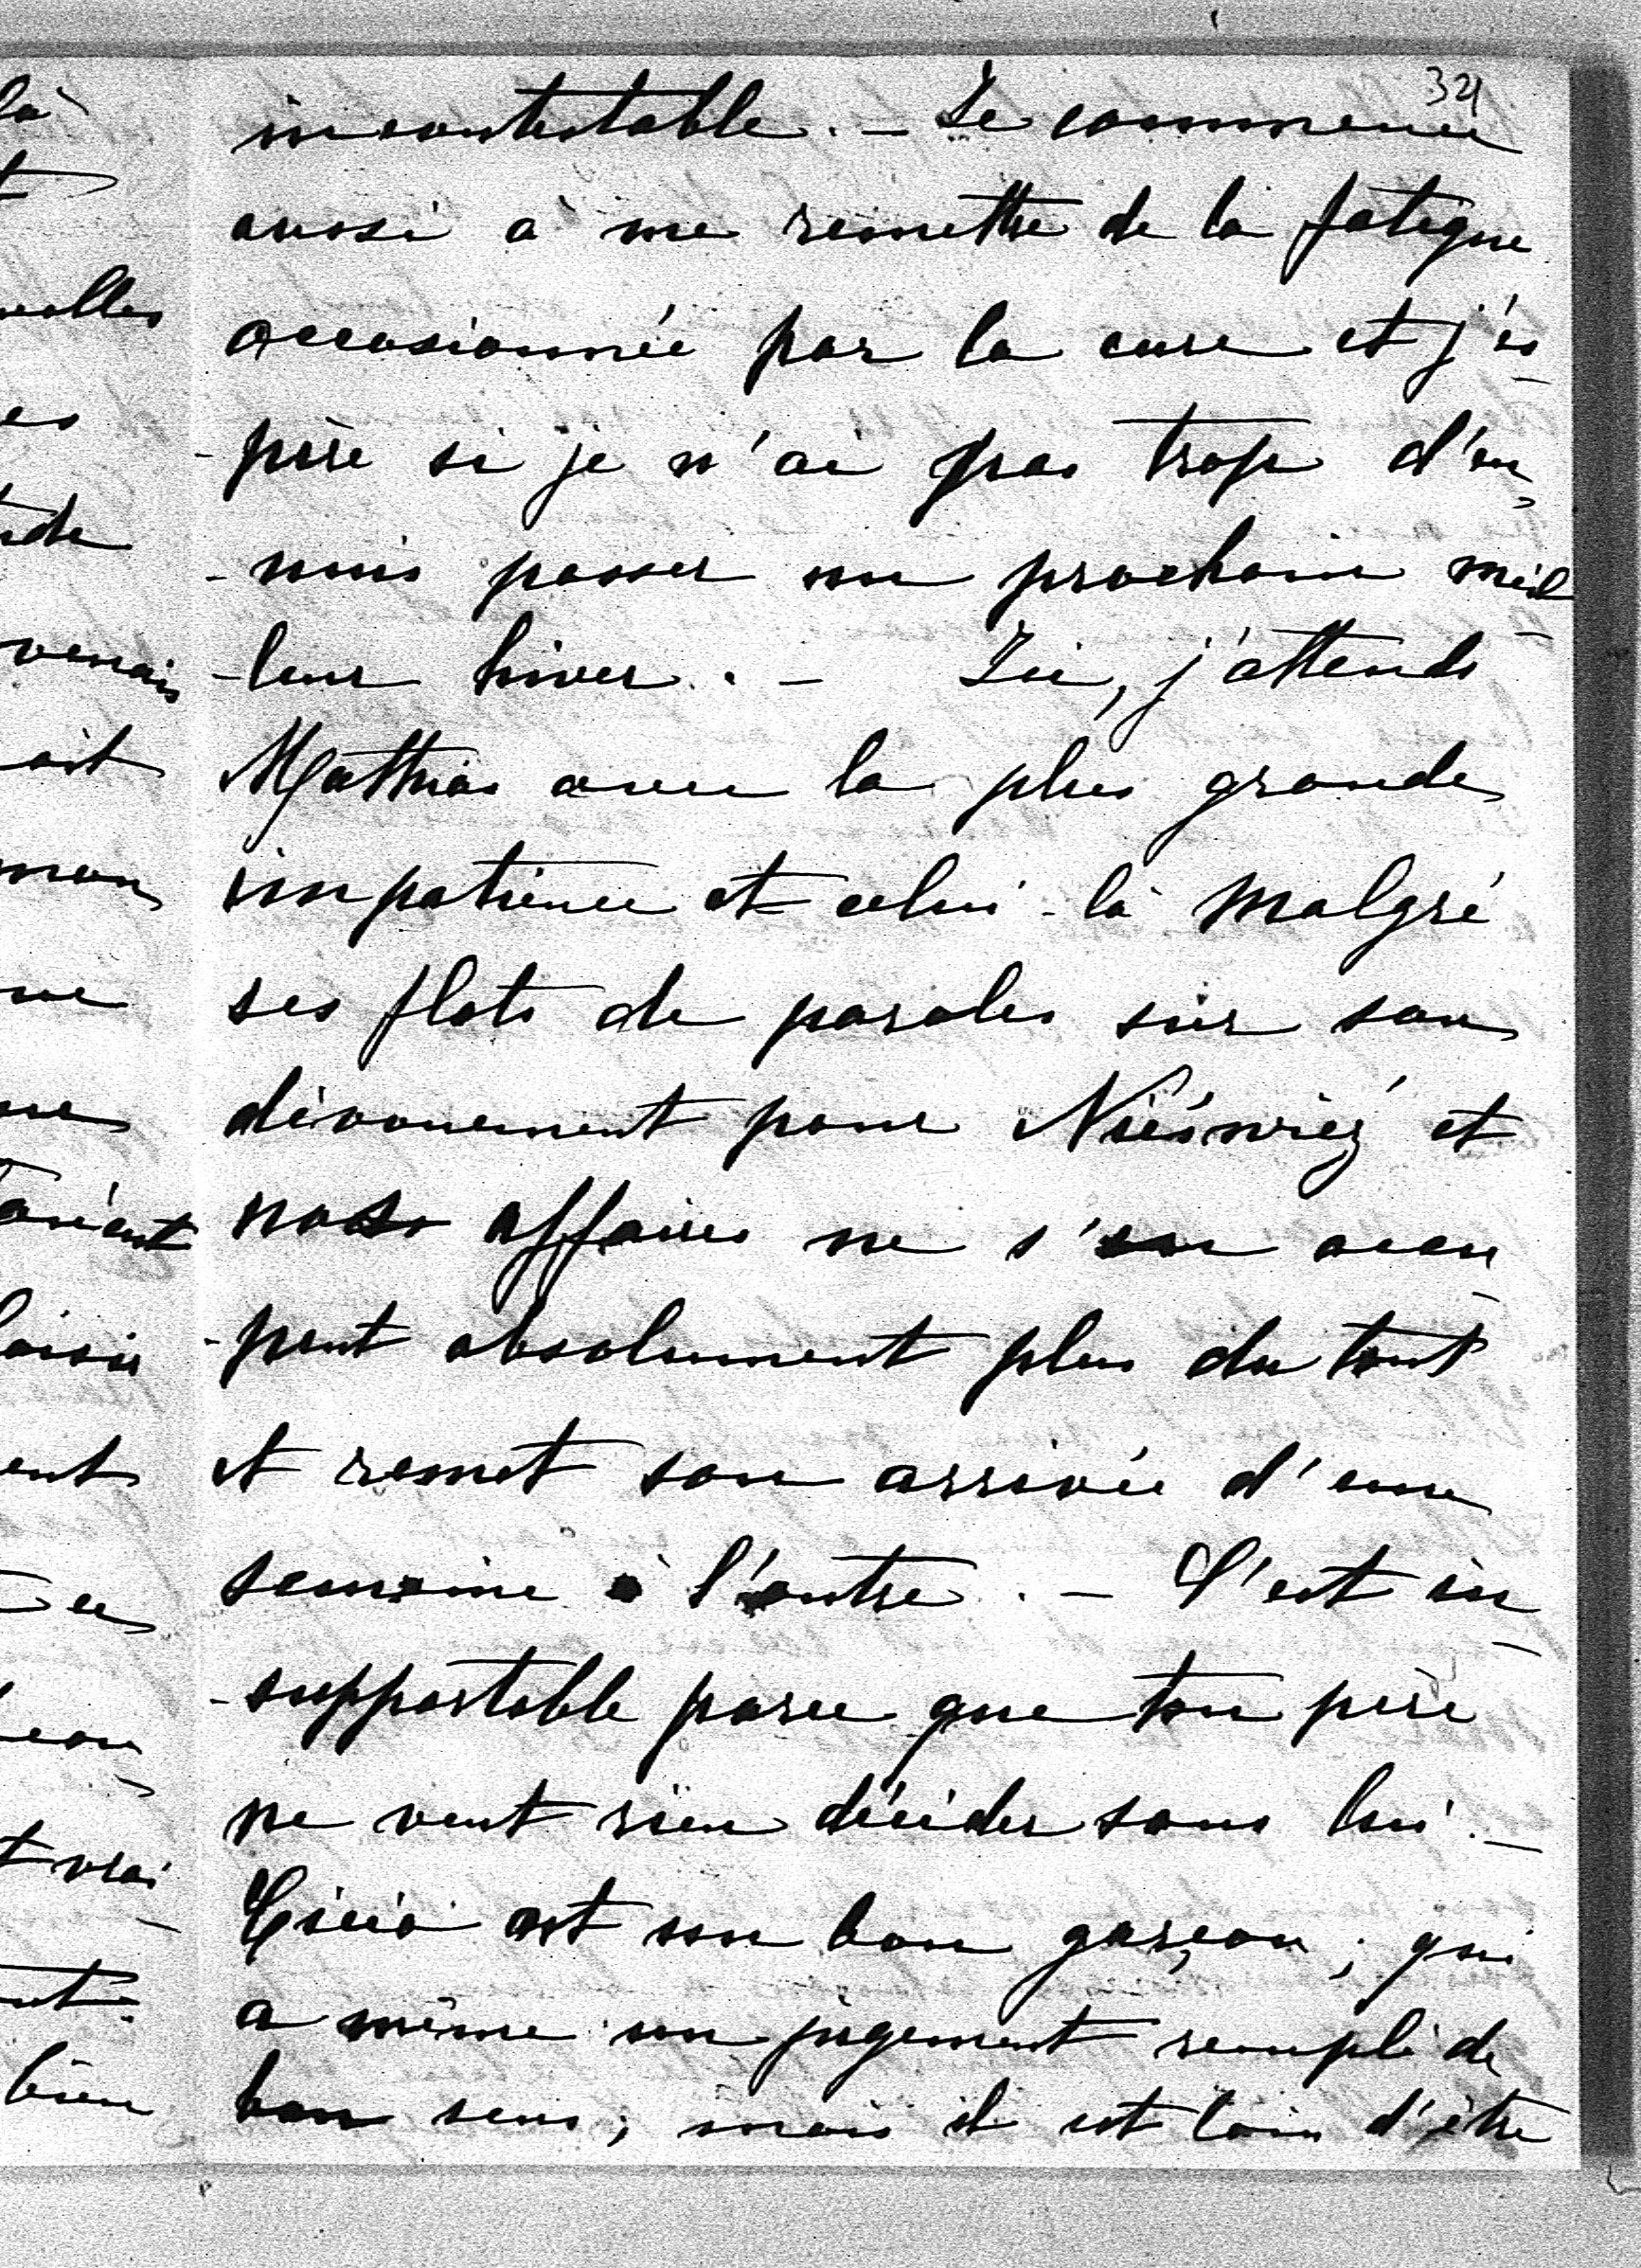 321
incontestable. – Je commence
aussi à me remettre de la fatigue
occasionnée par la cure et j'es-
-père si je n'ai pas trop d'en-
-nuis passer un prochain meil-
-leur hiver. – Ici, j'attends
Mathias avec la plus grande
impatience et celui-là malgré
ses flots de paroles sur son
dévouement pour Nieśwież et
nos affaires ne s'en occu-
-pent absolument plus du tout
et remet son arrivée d'une
semaine à l'autre. – C'est in-
-supportable parce que ton père
ne veut rien décider sans lui. –
est un bon garçon; qui
a même un jugement rempli de
bon sens; mais il est loin d'être
là
t
velles
es
nde
venais
oit
mon
ue
loisir
ent
t vrai-
bien